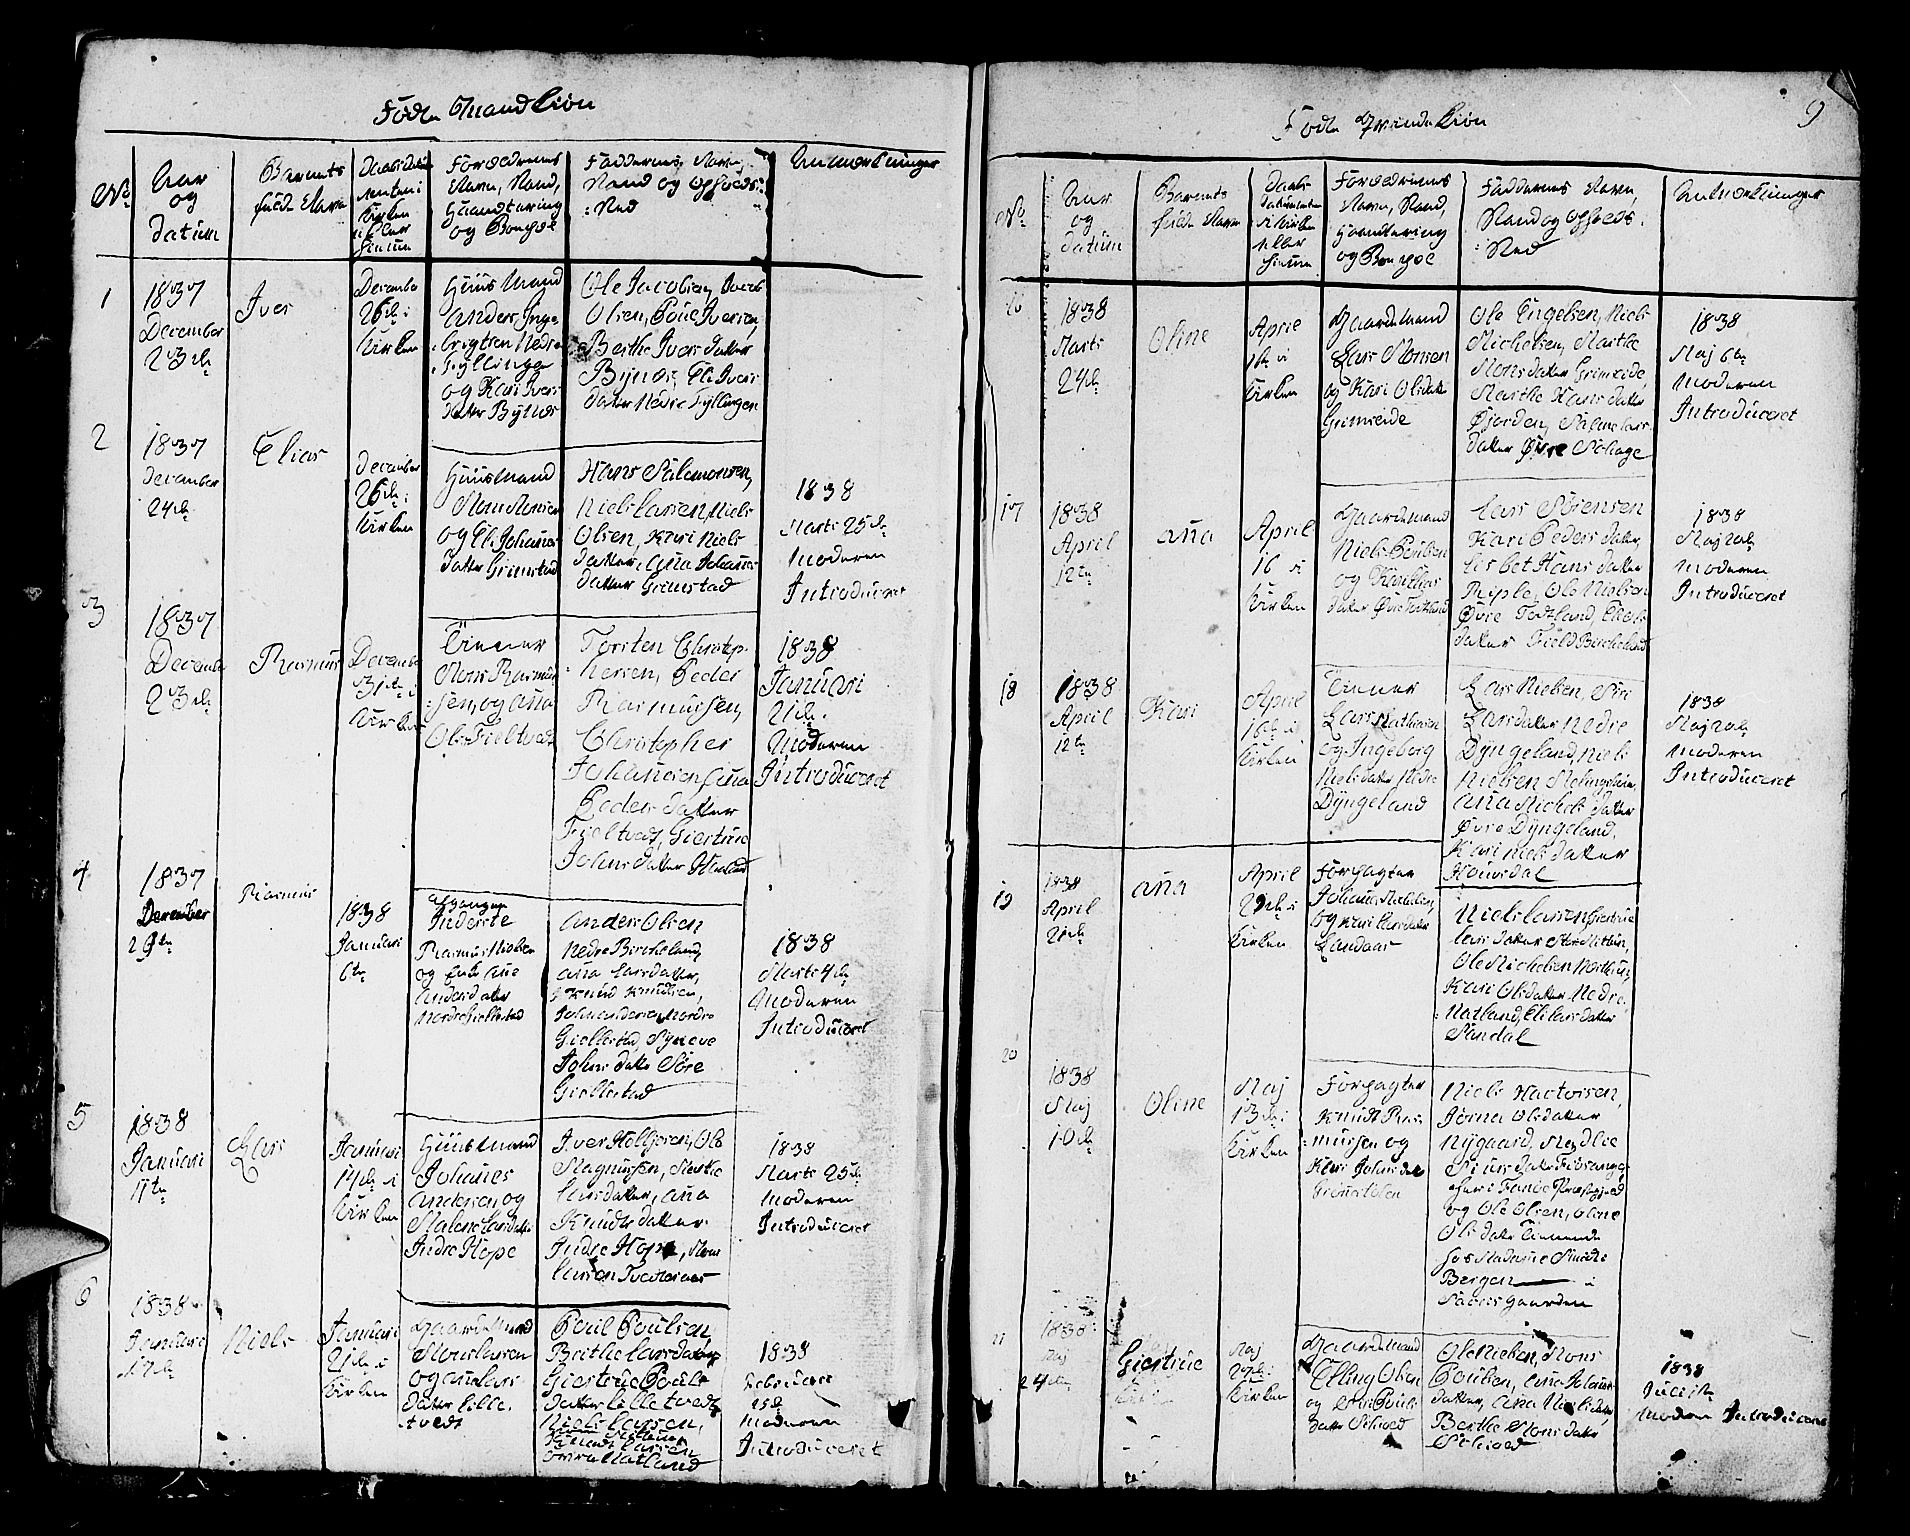 Fødte Mandkiøn
No
Aar
og
Datum
Barnets
fulde Navn
Daabs Datu
i Kirken
eller
hiemme
Forældrenes
Navn, Stand,
Haandtering
og Bopæl
Faddernes, Navn
Stand og Opholds:
:sted
Anmærkninger
1
1837
December
23de
Iver
Decembe
26de i
Kirken
Huusmand
Anders Inge-
:brigtsen Nedre
Fyllingen
og Kari Ivers
datter Bynes
Ole Jacobsen, Jacob
Olsen, Poul Iversen,
Berthe Ivers datter
Bynes, Eli Ivers
datter Nedre Fyllingen
2
1837
December
24de
Elias
December
26de i
Kirken
Huusmand
Mons Monsen
og Eli Johannes
datter Grimstad
Hans Salamonsen,
Niels Larsen, Niels
Olsen, Kari Niels
datter, Ana Johannes
datter Grimstad
1838
Marts 25de
Moderen
Introduceret
3
1837
Decembe
23de
Rasmus
Decembe
31te i
Kirken
Tiener
Mons Rasmus
:sen, og Ana
Ols Fieltvedt
Torsten Christop-
hersen, Peder
Rasmussen,
Christopher
Johannesen, Ana
Peders datter
Fieltvedt, Giertrue
Johns datter Houland
1838
Januari
21de
Moderen
Introduceret
4
1837
December
29te
Rasmus
1838
Januari
6te
afgangen
Inderste
Rasmus Nielsen
og Enke Ane
Anders datter
Nordre Giellestad
Anders Olsen
Nedre Birkeland,
Ana Lars datter,
Knud Knudsen,
Johannes Nordre
Giellestad, Syneve
Johns datter Søre
Giellestad
1838
Marts 4de
Moderen
Introduceret
5
1838
Januari
11te
Lars
Januari
14de i
Kirken
Huusmand
Johanes
Andersen, og
Malene Lars datter
Indre Hope
Iver Holgersen, Ole
Magnussen, Marthe
Larsdatter, Ana
Knuds datter
Indre Hope, Mons
Larsen Tvedteraas
1838
Marts 25de
Moderen
Introduceret
6
1838
Januari
17de
Niels
Januari
21de i
Kirken
Gaardmand
Mons Larsen
og Ana Lars
datter Lille-
tvedt
Poul Poulsen,
Berthe Lars datter
Giertrue Pouls
datter Lilletvedt
Niels Larsen,
Knud Larsen
øvre Natland
1838
Februari
25de
Moderen
Introduceret
Fødte Qvindekiøn
9
No
Aar
og
Datum
Barnets
fulde Navn
Daabs
datummet
i Kirken
eller
hiemme
Forældrenes
Navn, Stand,
Haandtering
og Bopæl
Faddernes Navn,
Stand og Opholds:
:sted
Anmærkninger
16
1838
Marts
24de
Oline
April
16de i
Kirken
Gaardmand
Lars Monsen
og Kari Olsdatter
Grimseide
Ole Engelsen, Niels
Michelsen, Marthe
Monsdatter Grimseide,
Marthe Hans datter
Øjorden, Malene Lars
datter Øvre Schage
17
1838
April
12te
Ana
April
16 i
Kirken
Gaardmand
Niels Poulsen
og Kari Lars
datter Øvre Totland
Lars Sørensen
Kari Peders datter,
Lisbet Hans datter
Riple, Ole Nielsen
Øvre Totland, Eli Ols
datter Field Birkeland
1838
Maj 20de
Moderen
Introduceret
1838
Maj 6te
Moderen
Introduceret
18
1838
April
12te
Kari
April
16de i
Kirken
Tiener
Lars Mathiesen
og Ingeborg
Niels datter Nedre
Dyngeland
Lars Nielsen, Siri
Larsdatter Nedre
Dyngeland, Niels
Nielsen Helingsheim
Ana Michels datter
Øvre Dyngeland,
Kari Niels datter
Houisdal
1838
Maj 20de
Moderen
Introduceret
19
1838
April
21de
Ana
April
29de i
Kirken
Forpagter
Johanes Nielsen
og Kari Larsdatter
Landaas
Niels Larsen Giertrue
Lars datter Store Mittun,
Ole Michelsen Northun,
Kari Olsdatter Nedre
Natland, Eli Lars datter
Sandal
20
1838
Maj
10de
Oline
Maj
13de i
Kirken
Forpagter
Knudt Ras-
:mussen og
Kari Johns datter
Grønestølen
Niels Hactorsen,
Jorna Olsdatter
Nygaard, Magdle
Siurs datter Fibsange
her i Fanøe Præstegield
og Ole Olsen, Oline
Ols datter Tienende
hos Madame Smidt
Bergen i
Sacris gaarden
21
1838
Maj
24de
Giertrue
Maj
27de i
Kirken
Gaardmand
Elling Olsen
og Ana Pouls
datter Schioed
Ole Nielsen, Mons
Poulsen, Ana Johannes
datter, Ana Niels datter,
Berthe Mons datter
Schioed
1838
Juli 1te
Moderen Introduceret